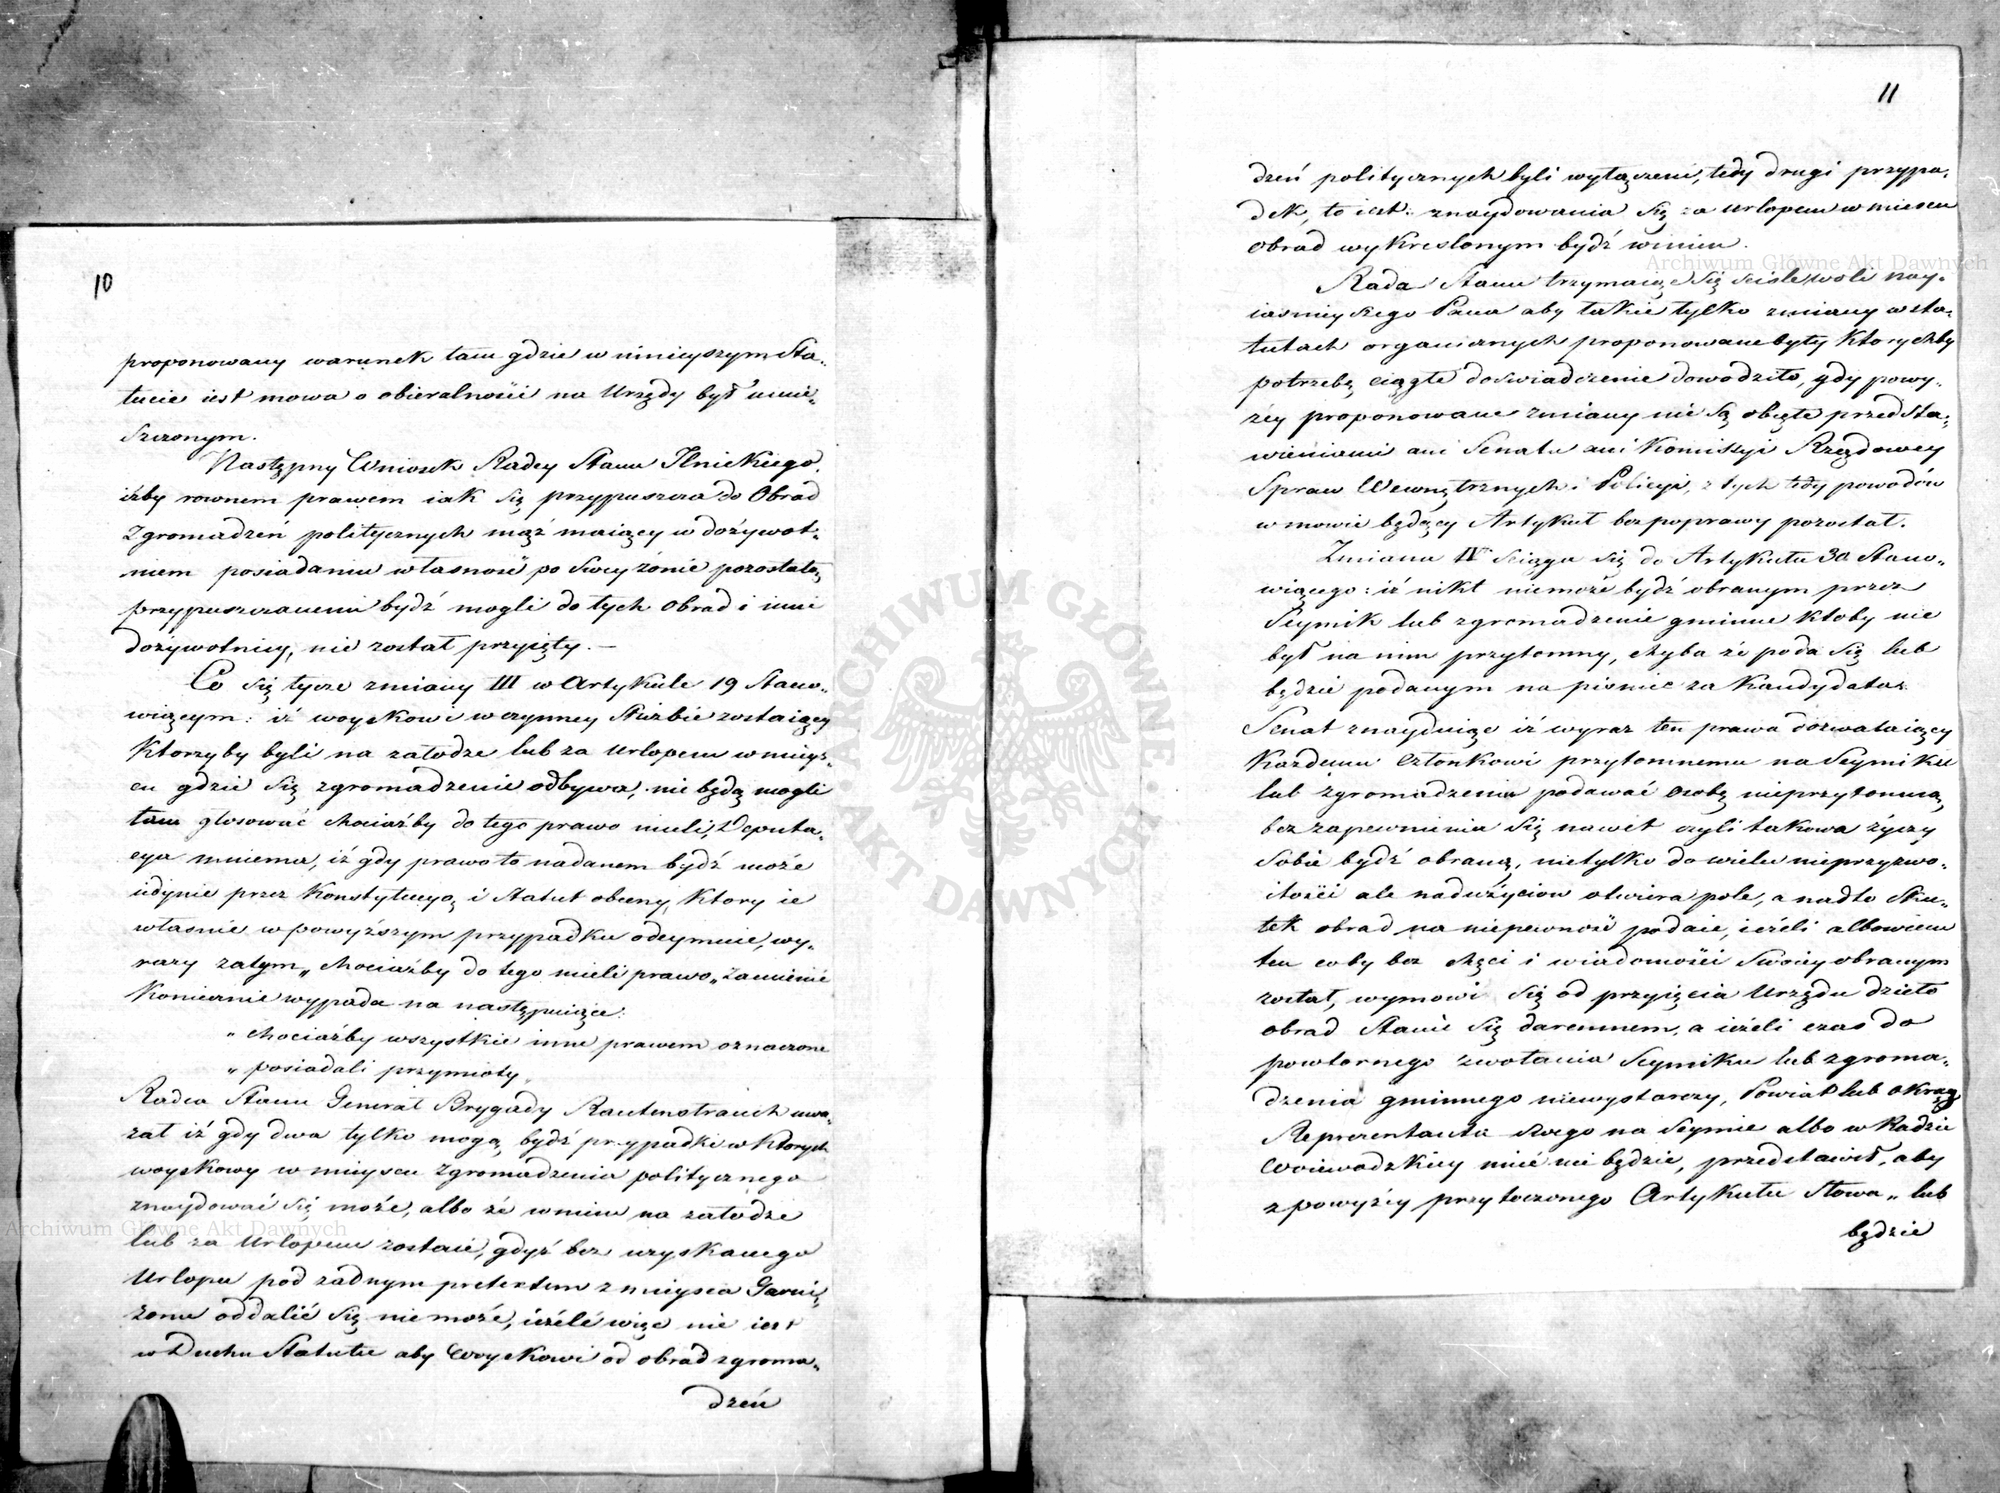 10
proponowany warunek tam gdzie w ninieyszym Sta„
tucie iest mowa o obieralności na Urzędy był umie„
szczonym.
Następny Wniosek Radcy Stanu Ilnickiego,
iżby rownem prawem iak się przypuszcza do Obrad
Zgromadzeń politycznych mąż maiący w dożywot„
niem posiadaniu własność po Swey żonie pozostałą,
przypuszczanemi bydź mogli do tych Obrad i inni
dożywotnicy, nie został przyięty. —
Co się tycze zmiany III w Artykule 19 Stano„
wiącym: iż woyskowi w czynney Służbie zostaiący
Ktorzyby byli na załodze lub za Urlopem w mieys„
cu gdzie się zgromadzenie odbywa, nie będą mogli
tam głosować chociażby do tego prawo mieli, Deputa„
cya mniema, iż gdy prawo to nadanem bydź może
iedynie przez Konstytucyą i Statut obecny, Ktory ie
własnie w powyższym przypadku odeymuie, wy„
razy zatym „ chociażby do tego mieli prawo „ zamienić
Koniecznie wypada na następuiące:
„ chociażby wszystkie inne prawem oznaczone
„ posiadali przymioty „
Radca Stanu Generał Brygady Rautenstrauch uwa„
żał iż gdy dwa tylko mogą bydź przypadki w Ktorych
woyskowy w mieyscu Zgromadzenia politycznego
znaydować się może, albo że w niem na załodze
lub za Urlopem zostaie, gdyż bez uzyskanego
Urlopu pod żadnym pretextem z mieysca Garni„
zonu oddalić się nie może, ieżeli więc nie iest
w Duchu Statutu aby Woyskowi od obrad zgroma„
dzeń
11
dzeń politycznych byli wyłączeni, tedy drugi przypa„
dek, to iest: znaydowania się za Urlopem w miescu
Obrad wykreslonym bydź winien.
Rada Stanu trzymaiąc się scisle woli Nay„
iasnieyszego Pana aby takie tylko zmiany w sta„
tutach organicznych proponowane były Ktorychby
potrzebę ciągłe doswiadczenie dowodziło, gdy powy„
żey proponowane zmiany nie są obięte przedsta„
wieniami ani Senatu ani Kommissyi Rządowey
Spraw Wewnętrznych i Policyi, z tych tedy powodów
w mowie będący Artykuł bez poprawy pozostał.
Zmiana IV sciąga się do Artykułu 30 Stano„
wiącego: iż nikt niemoże bydź obranym przez
Seymik lub zgromadzenie gminne Ktoby nie
był na nim przytomny, chyba że poda się lub
będzie podanym na pismie za Kandydata.
Senat znayduiąc iż wyraz ten prawa dozwalaiący
Każdemu Członkowi przytomnemu na Seymiku
lub Zgromadzeniu podawać Osobę nieprzytomną,
bez zapewnienia się nawet czyli takowa życzy
sobie bydź obraną, nietylko do wielu nieprzyzwo„
itości ale nadużyciow otwiera pole, a nadto Sku„
tek obrad na niepewność podaie, ieżeli albowiem
ten coby bez chęci i wiadomości Swoiey obranym
został, wymowi się od przyięcia Urzędu dzieło
obrad Stanie się daremnem, a ieżeli czas do
powtornego zwołania Seymiku lub zgroma„
dzenia gminnego niewystarczy, Powiat lub Okrąg
Reprezentanta swego na Seymie albo w Radzie
Woiewodzkiey mieć nie będzie, przedstawił, aby
z powyżey przytoczonego Artykułu słowa „ lub
będzie
Archiwum Główne Akt Dawnych
Archiwum Główne Akt Dawnych
ARCHIWUM GŁÓWNE AKT DAWNYCH